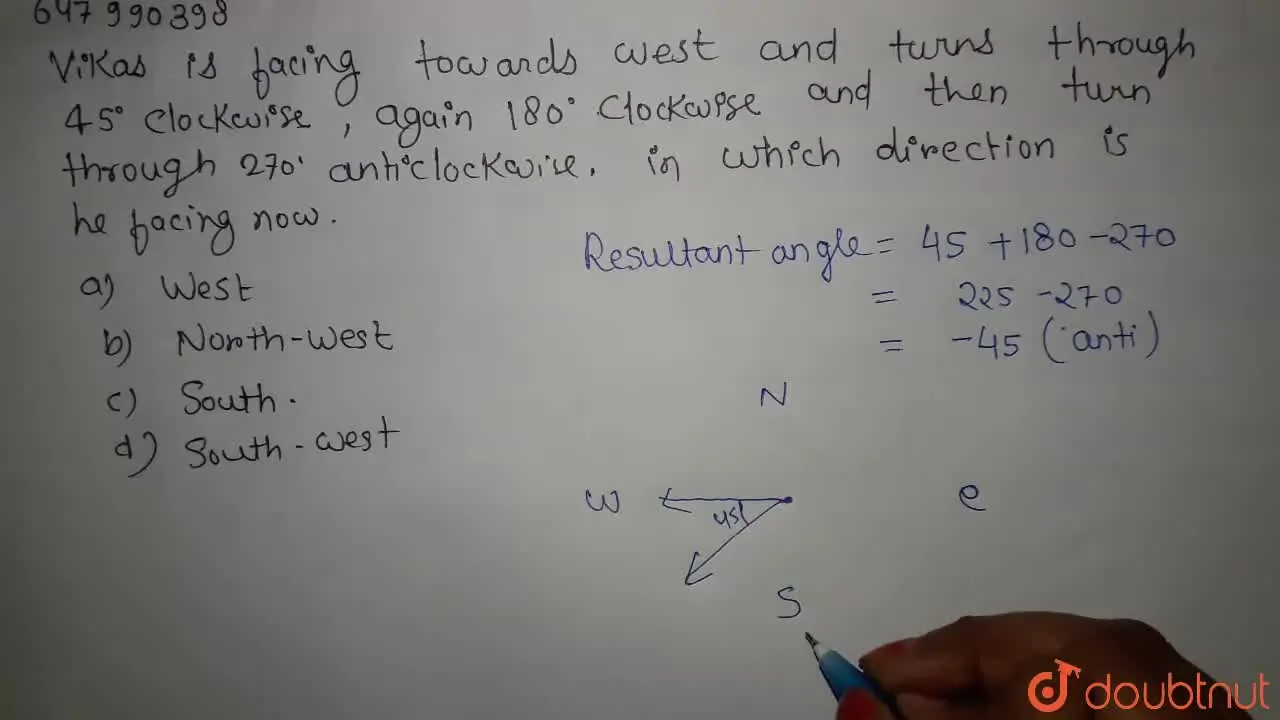 647990398
Vikas is facing towards west and turns through
45° clockwise, again 180° clockwise and then turn
through 270° anticlockwise. in which direction is
he facing now.
a) West
b) North-west
c) South.
d) South-west
Resultant angle = 45 + 180 - 270
= 225 - 270
= -45 (anti)
N
W
45
e
S
doubtnut